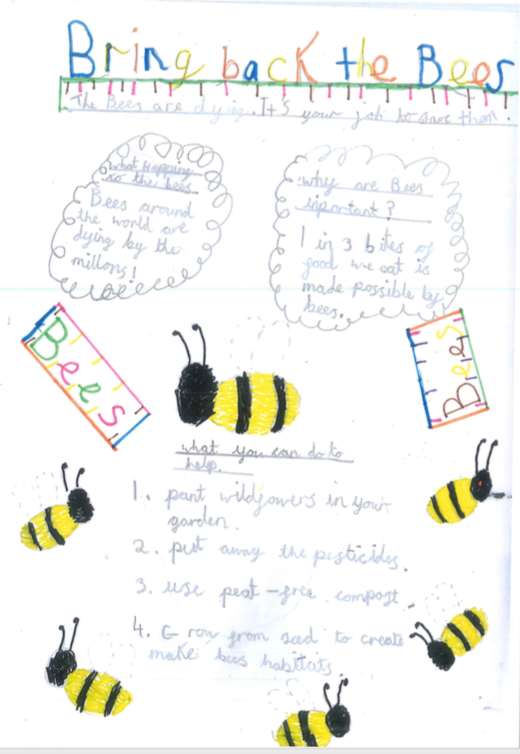 Bring back the Bees
The Bees are dying. It's your job to save them.
what Happing
to the bees
Bees around
the world are
dying by the
millons!
why are Bees
inportant?
1 in 3 bites of
food we eat is
made possible by
bees.
Bees
Bees
what you can do to
help.
1. pant wildfowers in your
garden.
2. put away the pesticides.
3. use peat-free compost.
4. Grow from seed to create
make bees habitats